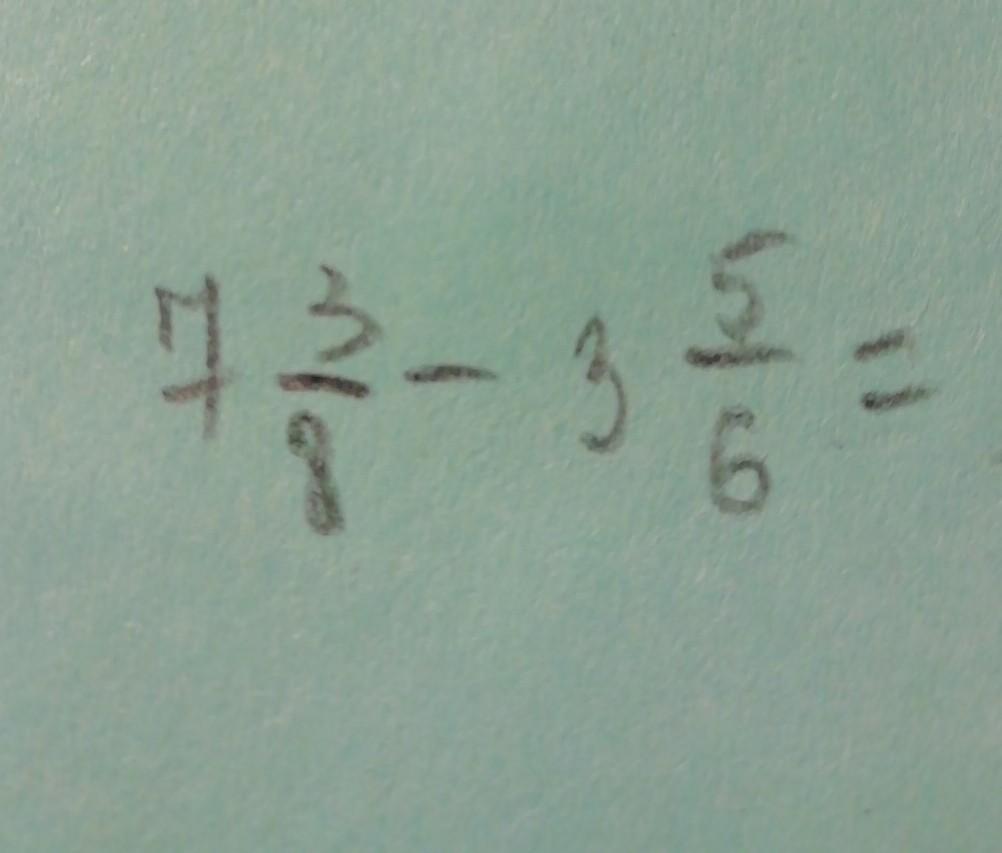 7 3/8 - 3 5/6 =